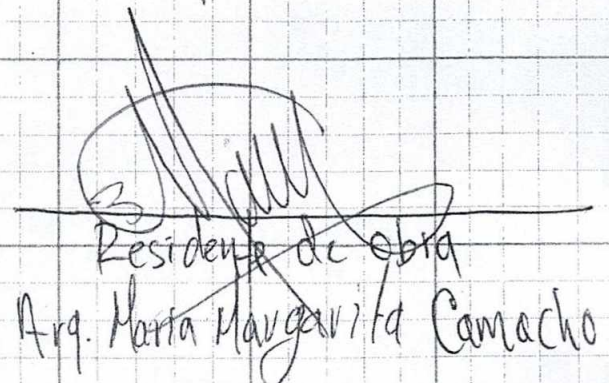 Residente de obra
Arq. María Margarita Camacho